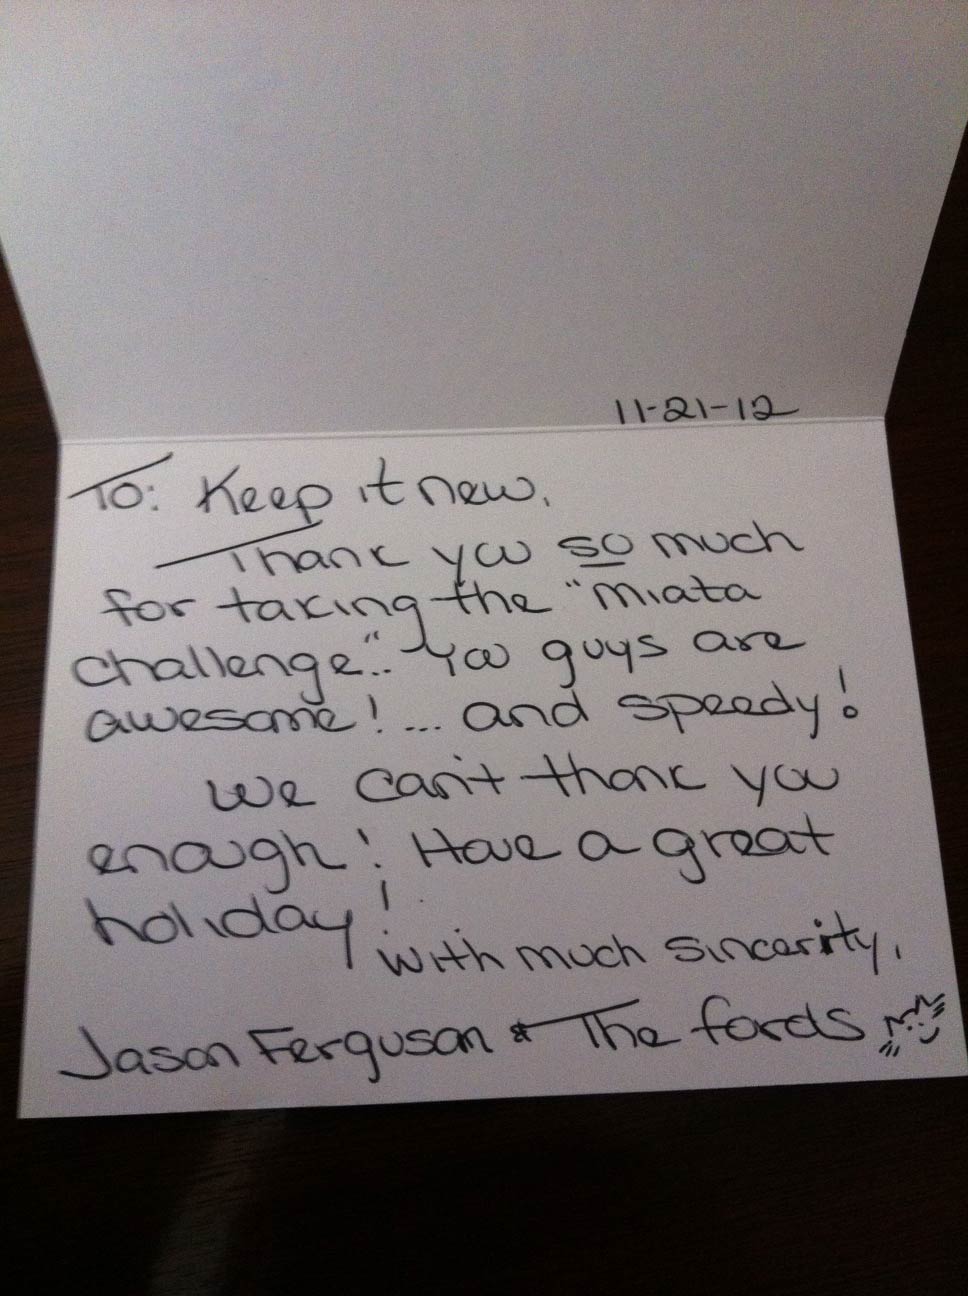 11-21-12
To: Keep it new,
Thank you so much
for taking the "miata
challenge." You guys are
awesome!... and speedy!
We can't thank you
enough! Have a great
holiday!
with much sincerity,
Jason Ferguson & The fords